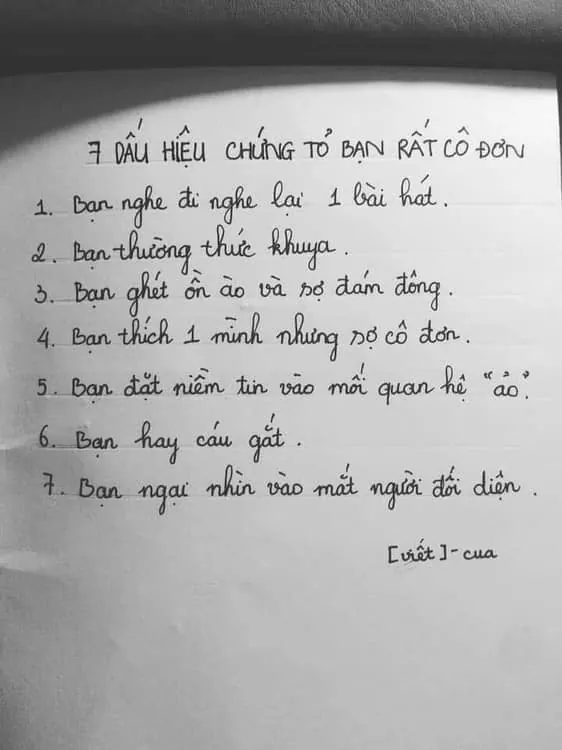 7 DẤU HIỆU CHỨNG TỎ BẠN RẤT CÔ ĐƠN
1. Bạn nghe đi nghe lại 1 bài hát.
2. Bạn thường thức khuya.
3. Bạn ghét ồn ào và sợ đám đông.
4. Bạn thích 1 mình nhưng sợ cô đơn.
5. Bạn đặt niềm tin vào mối quan hệ "ảo".
6. Bạn hay cáu gắt.
7. Bạn ngại nhìn vào mắt người đối diện.
[viết]-cua